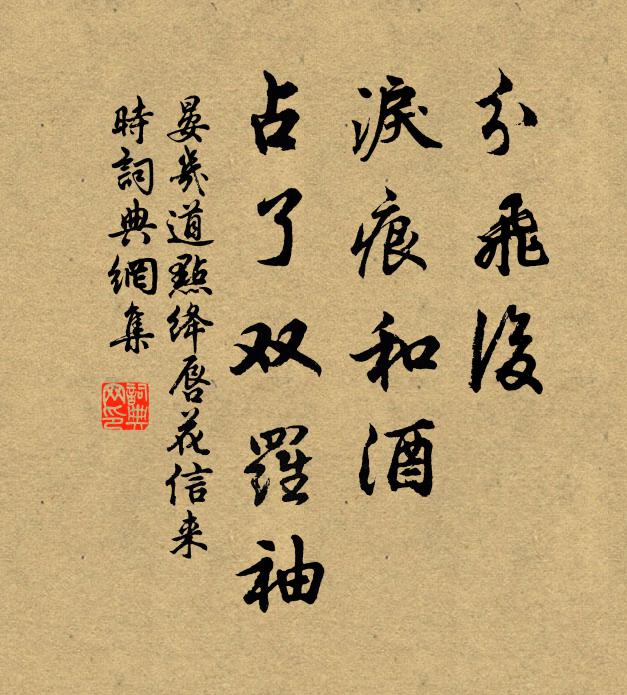 分飛後
淚痕和酒
占了双羅袖
晏幾道點絳唇花信来
時詞典網集
詞典网印